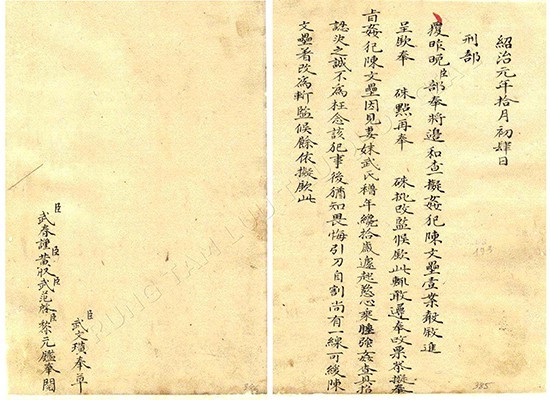 紹治元年拾月初肆日
刑部
覆昨晚臣部奉將邊和查擬姦犯陳文壘壹案敬敘進
呈欽奉 硃點再奉 硃批改監候欽此輒敢遵奉改票恭擬奉
旨姦犯陳文壘因見妻妹武氏穭年纔拾歲遽起慾心乘睡強姦查其招
認決之誠不為枉念該犯事後猶知畏悔引刀自割尚有一線可緩陳
文壘著改為斬監候餘依擬欽此
385
臣武文奉草
臣武春謹臣黃收臣武范啓臣黎元鑑奉閱
386
TRUNG TAM LUU TR